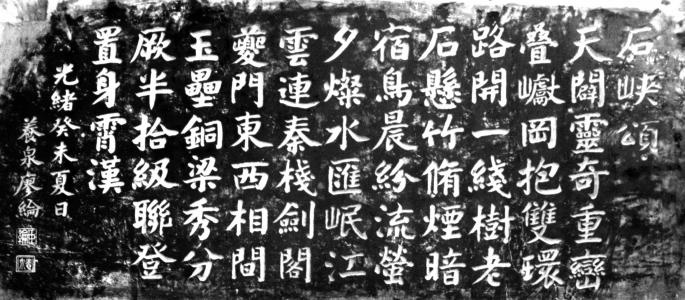 石峽頌
天闢靈奇重巒
疊巘岡抱雙環
路開一綫樹老
石懸竹脩煙暗
宿鳥晨紛流螢
夕燦水匯岷江
雲連秦棧劍閣
夔門東西相間
玉壘銅梁秀分
厥半拾級聯登
置身霄漢
光緒癸未夏日
養泉廖綸